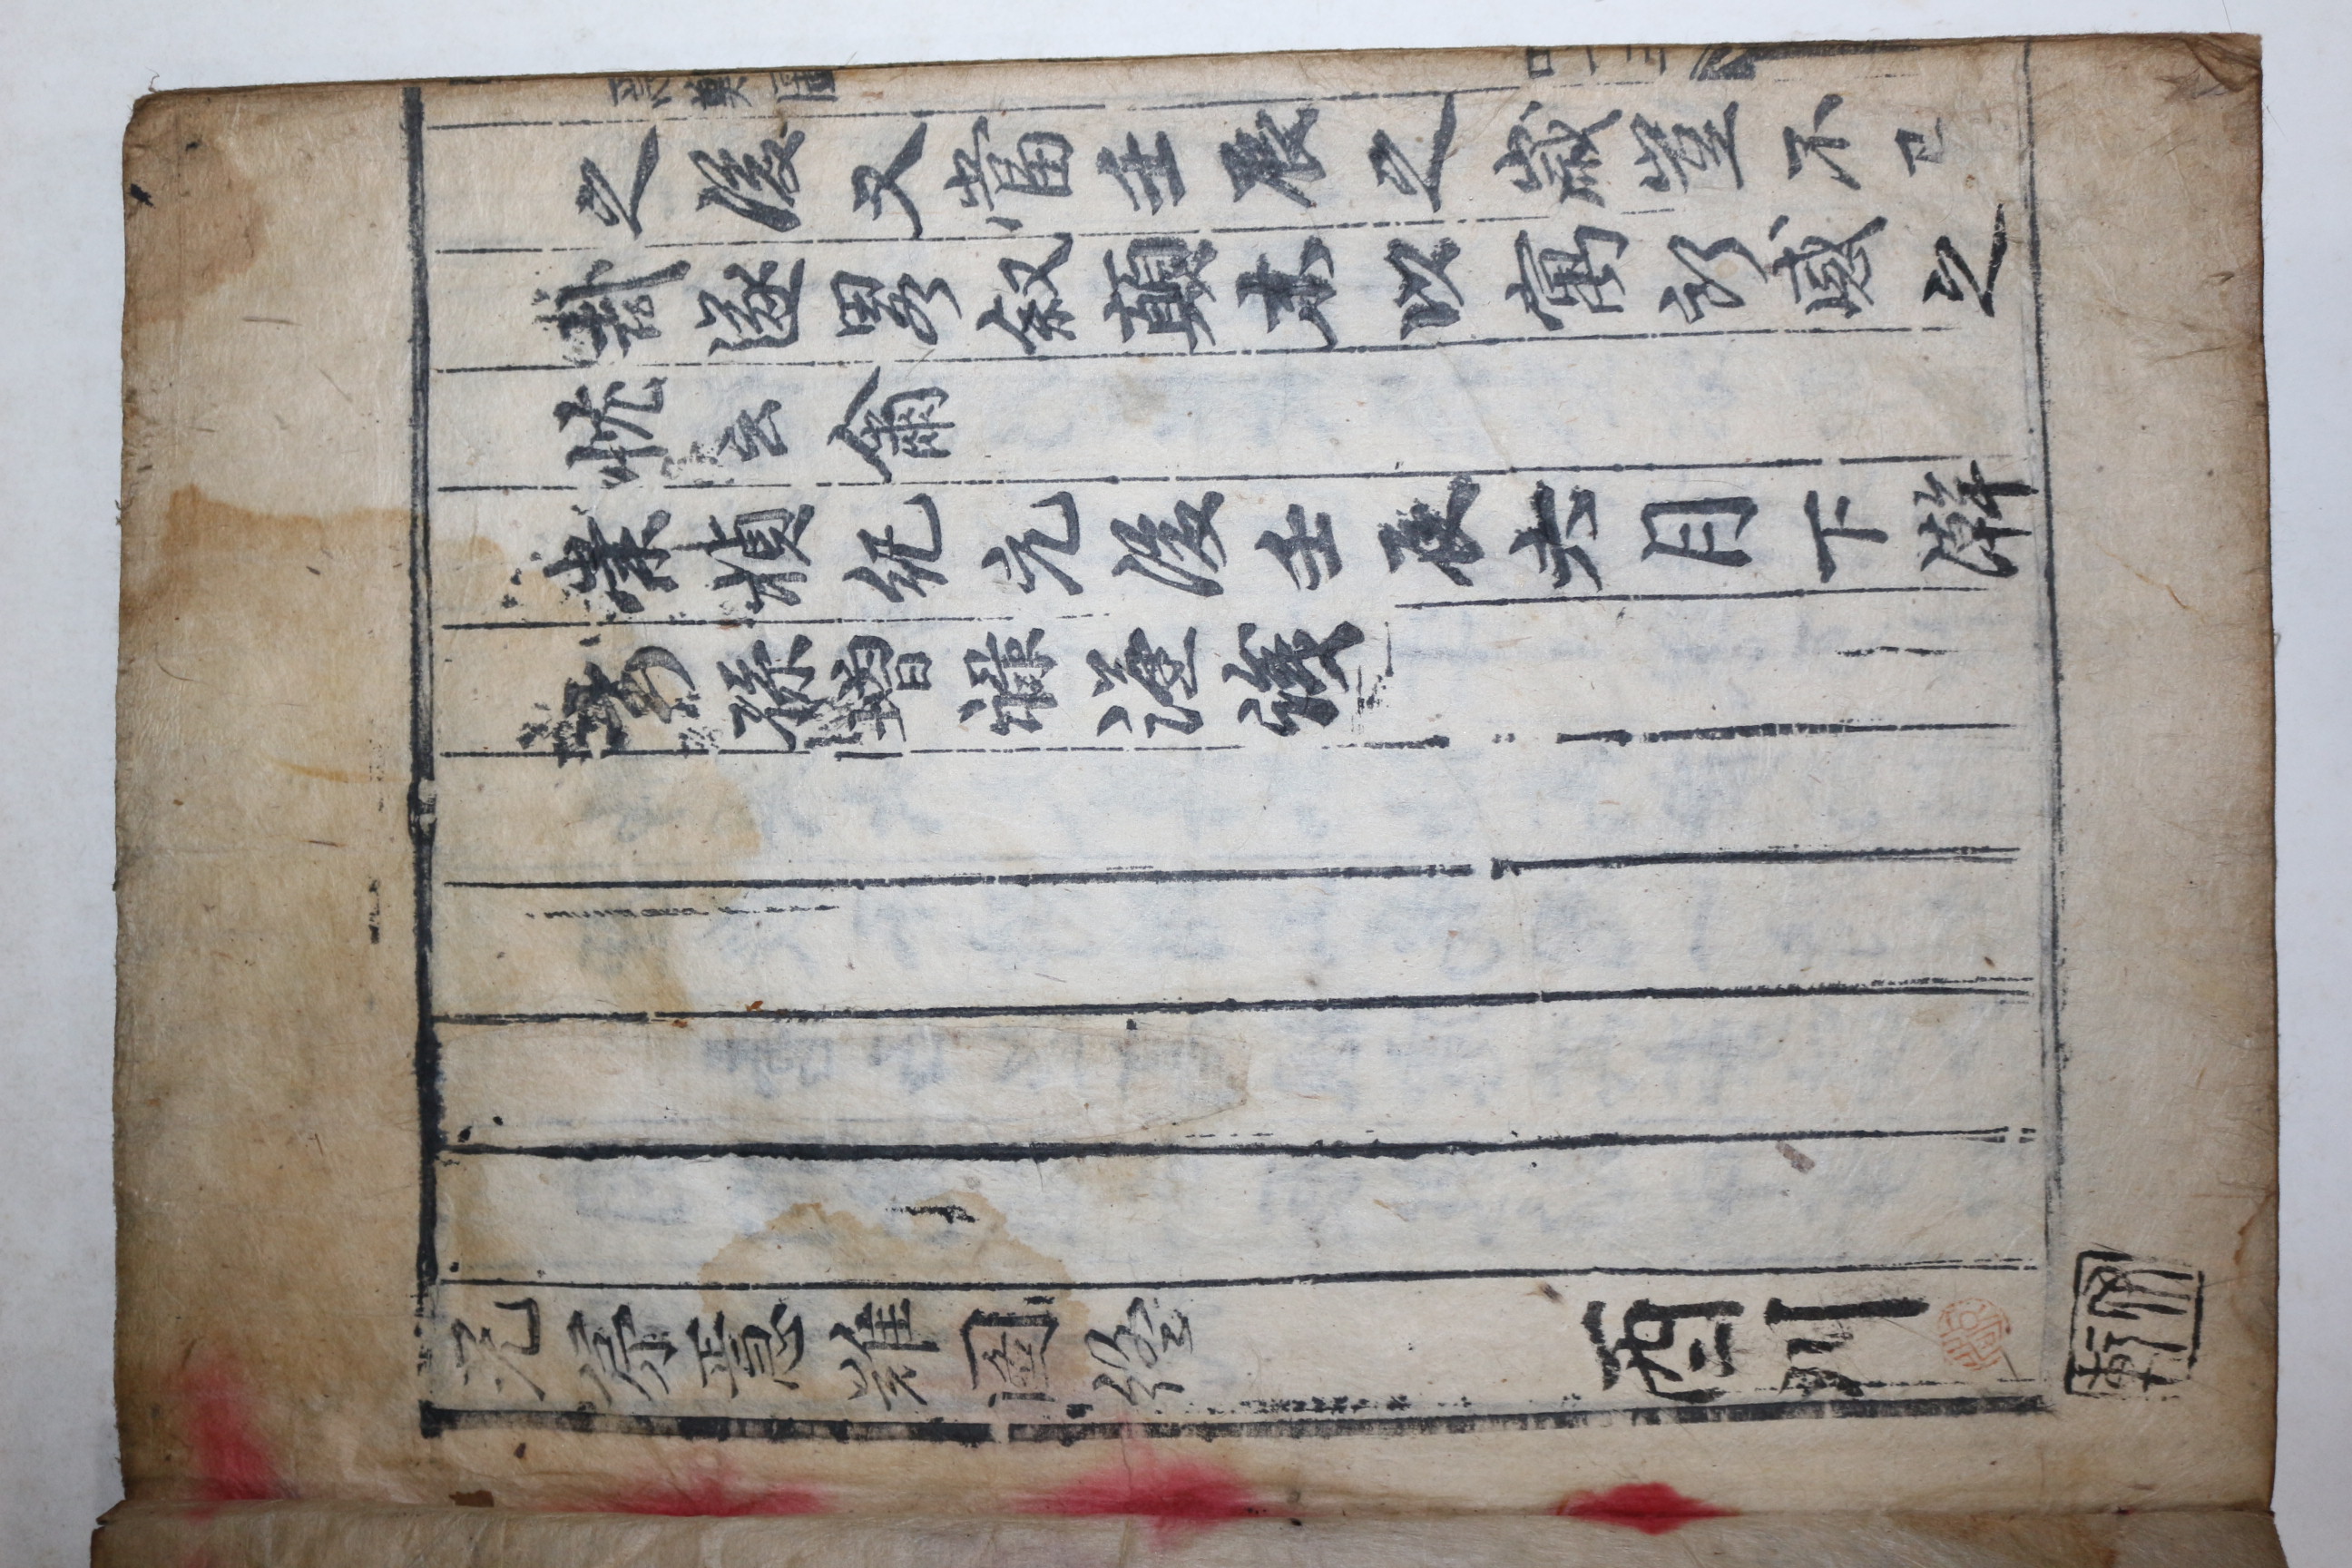 之後又當壬辰之歲豈不已
哉遂畧叙顚末以寓所感之
忱云爾
崇禎紀元後壬辰六月下澣
孫增祿謹識
兄弟急難圖終 酉川